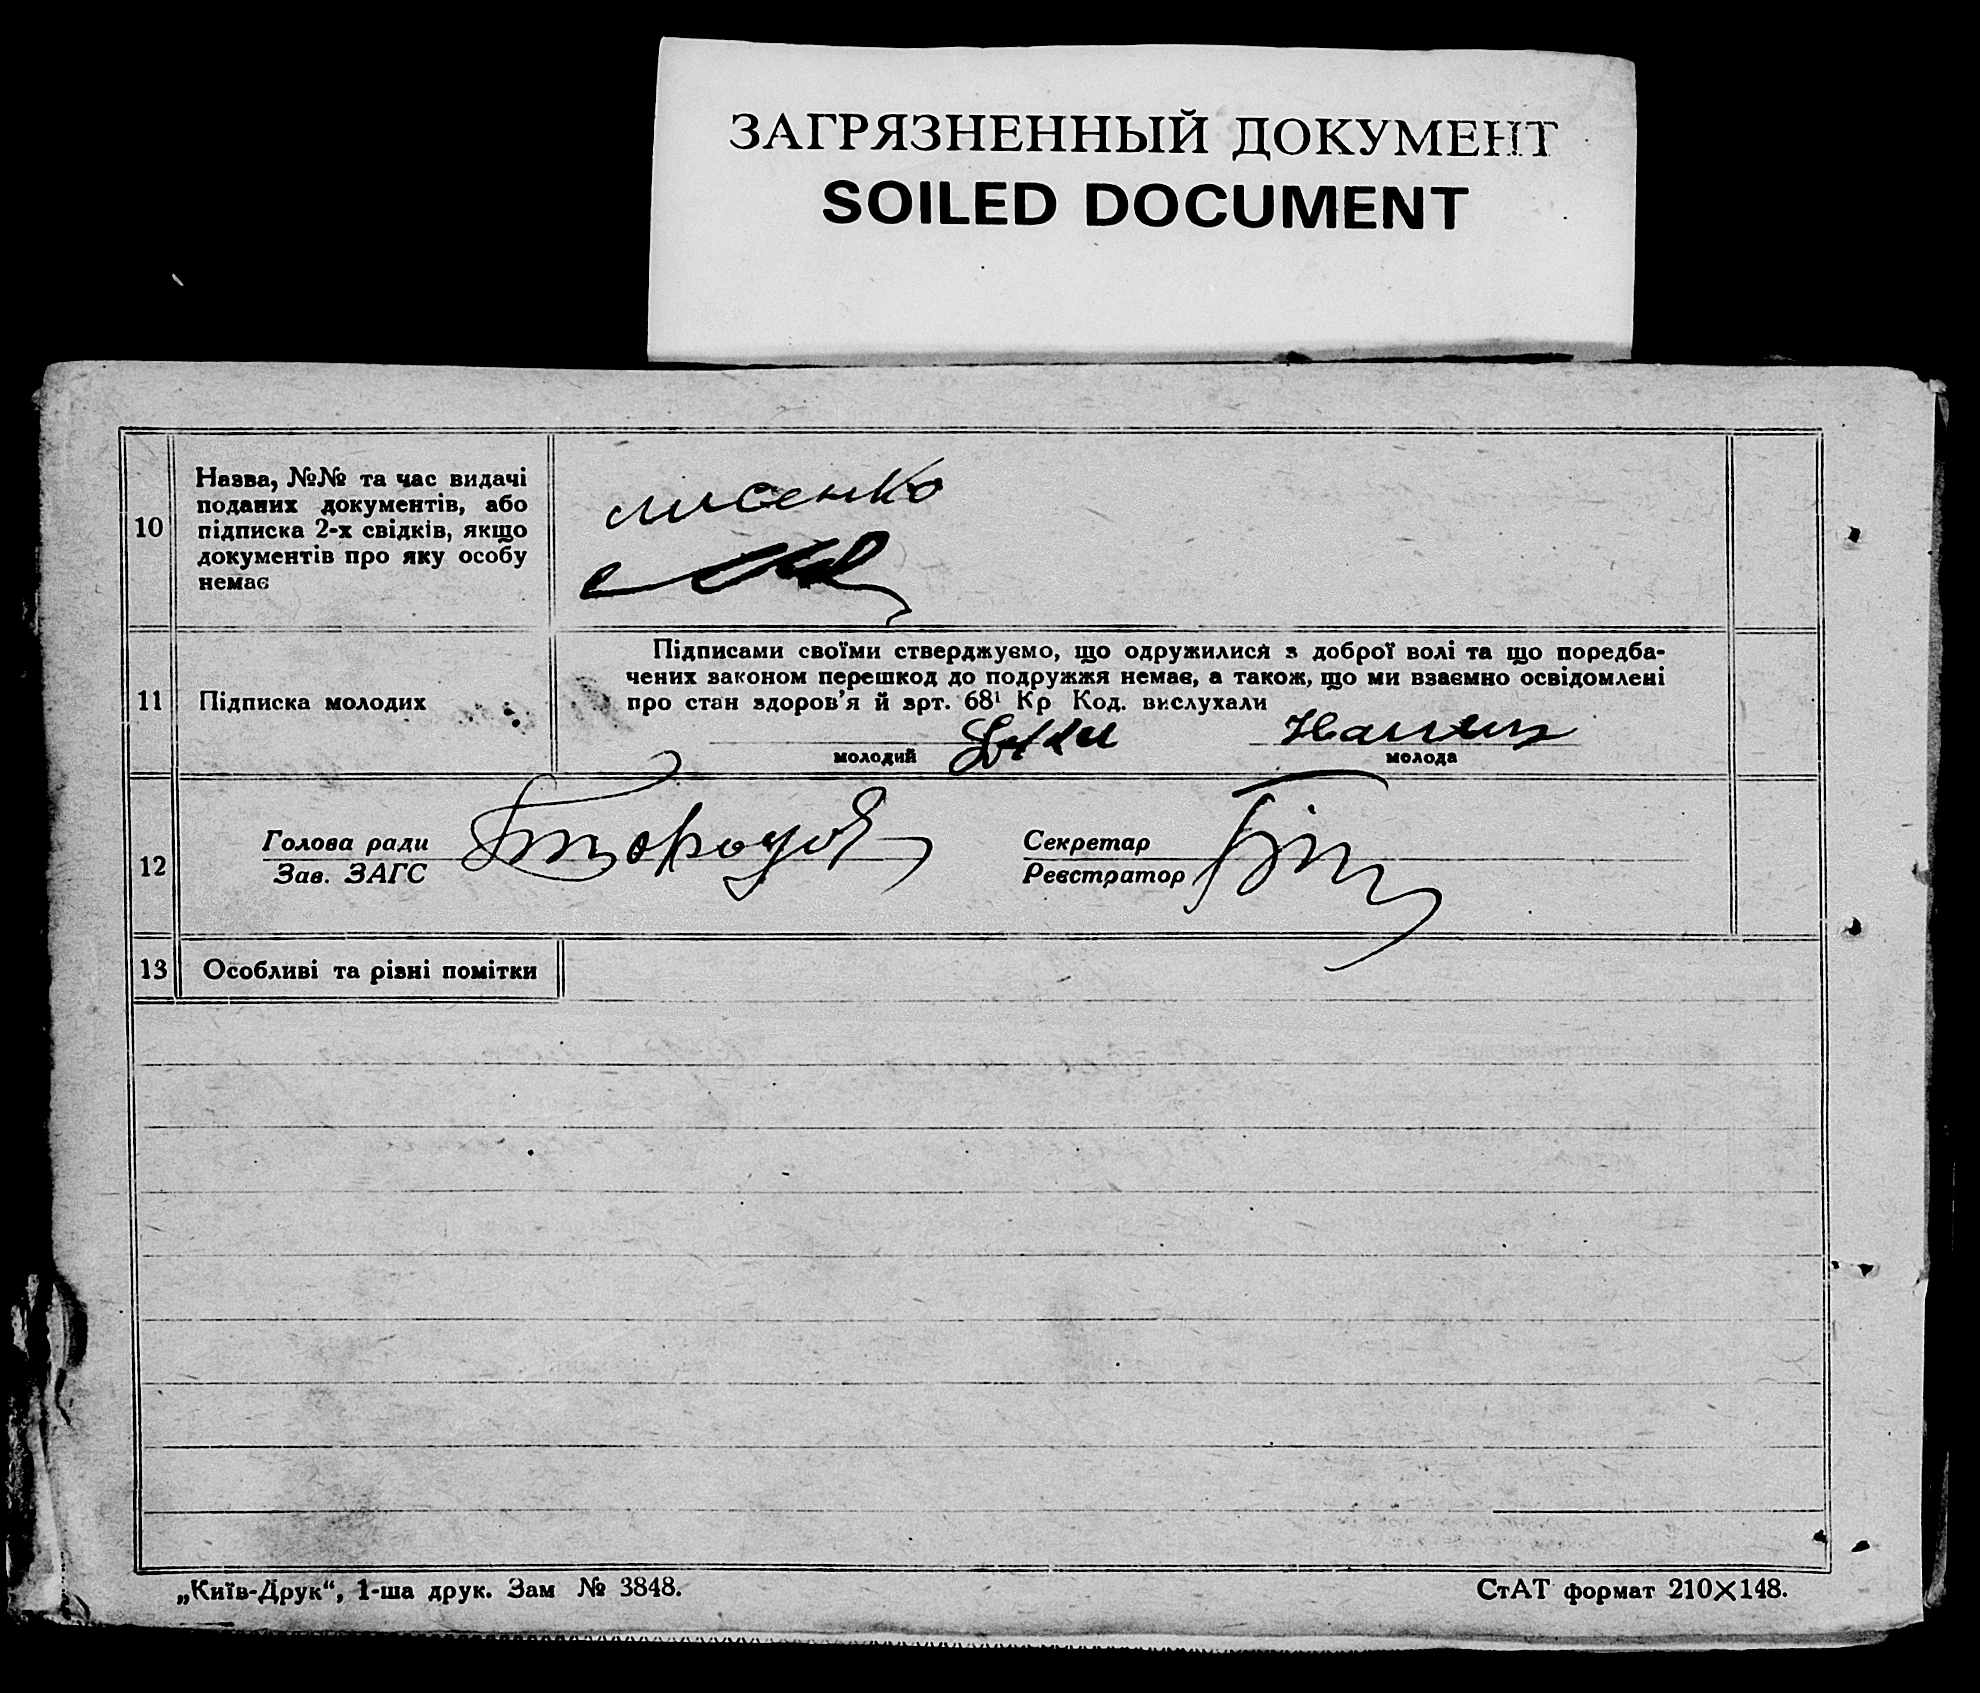 ЗАГРЯЗНЕННЫЙ ДОКУМЕНТ
SOILED DOCUMENT
10
Назва, №№ та час видачі
поданих документів, або
підписка 2-х свідків, якщо
документів про яку особу
немає
лисенко
11
Підписка молодих
Підписами своїми стверджуємо, що одружилися з доброї волі та що поредба-
чених законом перешкод до подружжя немає, а також, що ми взаємно освідомлені
про стан здоров'я й арт. 68¹ Кр Код. вислухали
молодий
молода
12
Голова ради
Зав. ЗАГС
Секретар
Реєстратор
13
Особливі та різні помітки
„Київ-Друк“, 1-ша друк. Зам № 3848.
СтАТ формат 210×148.